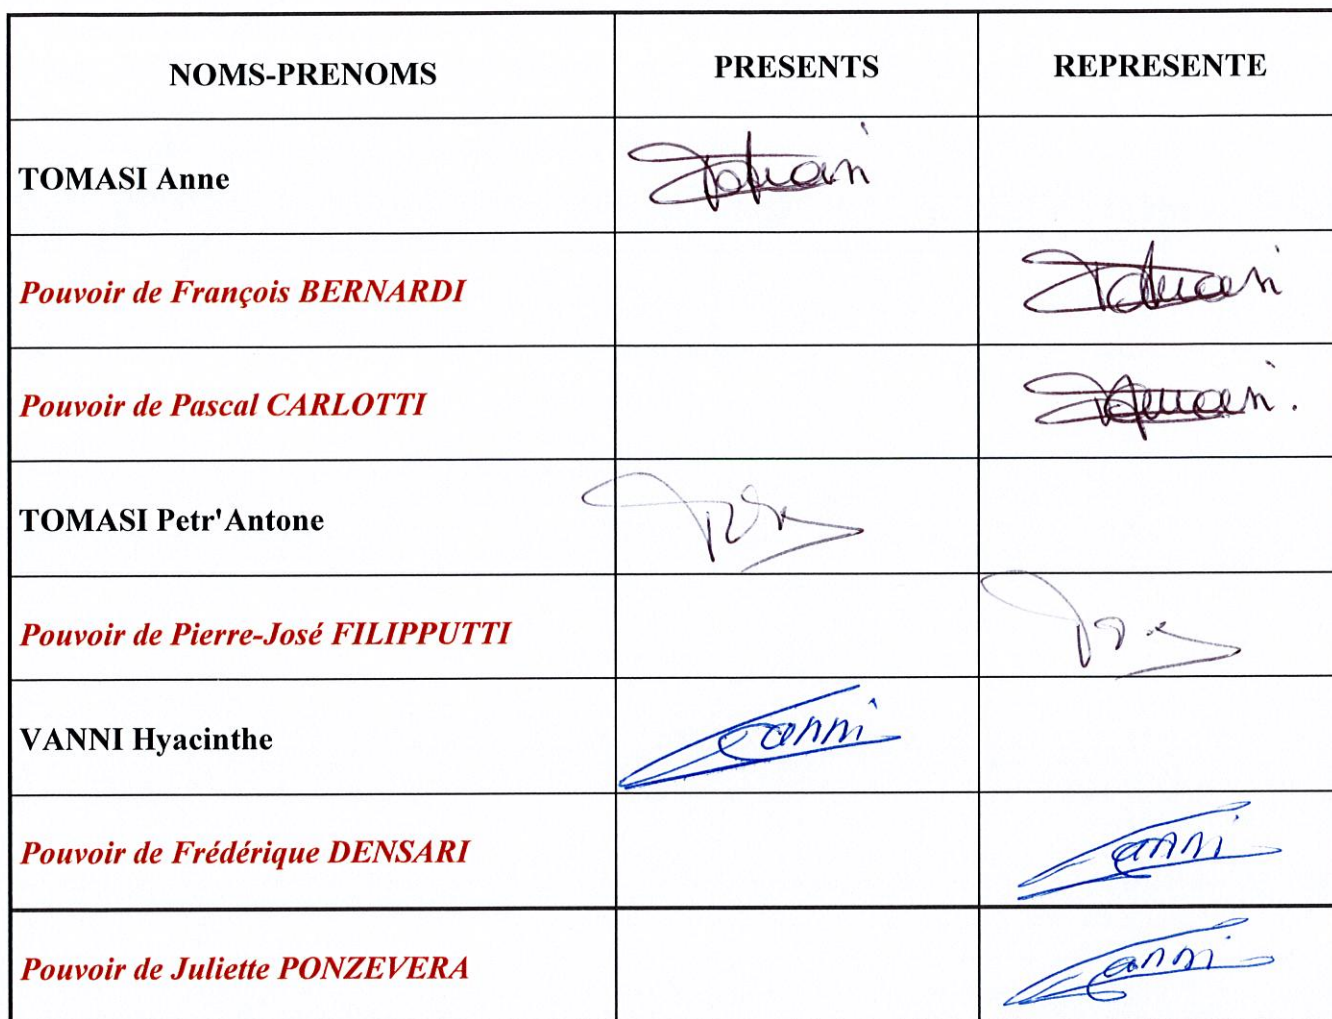 NOMS-PRENOMS PRESENTS REPRESENTE
TOMASI Anne Tomasi
Pouvoir de François BERNARDI Tomasi
Pouvoir de Pascal CARLOTTI Tomasi
TOMASI Petr'Antone
Pouvoir de Pierre-José FILIPPUTTI
VANNI Hyacinthe Vanni
Pouvoir de Frédérique DENSARI Vanni
Pouvoir de Juliette PONZEVERA Vanni